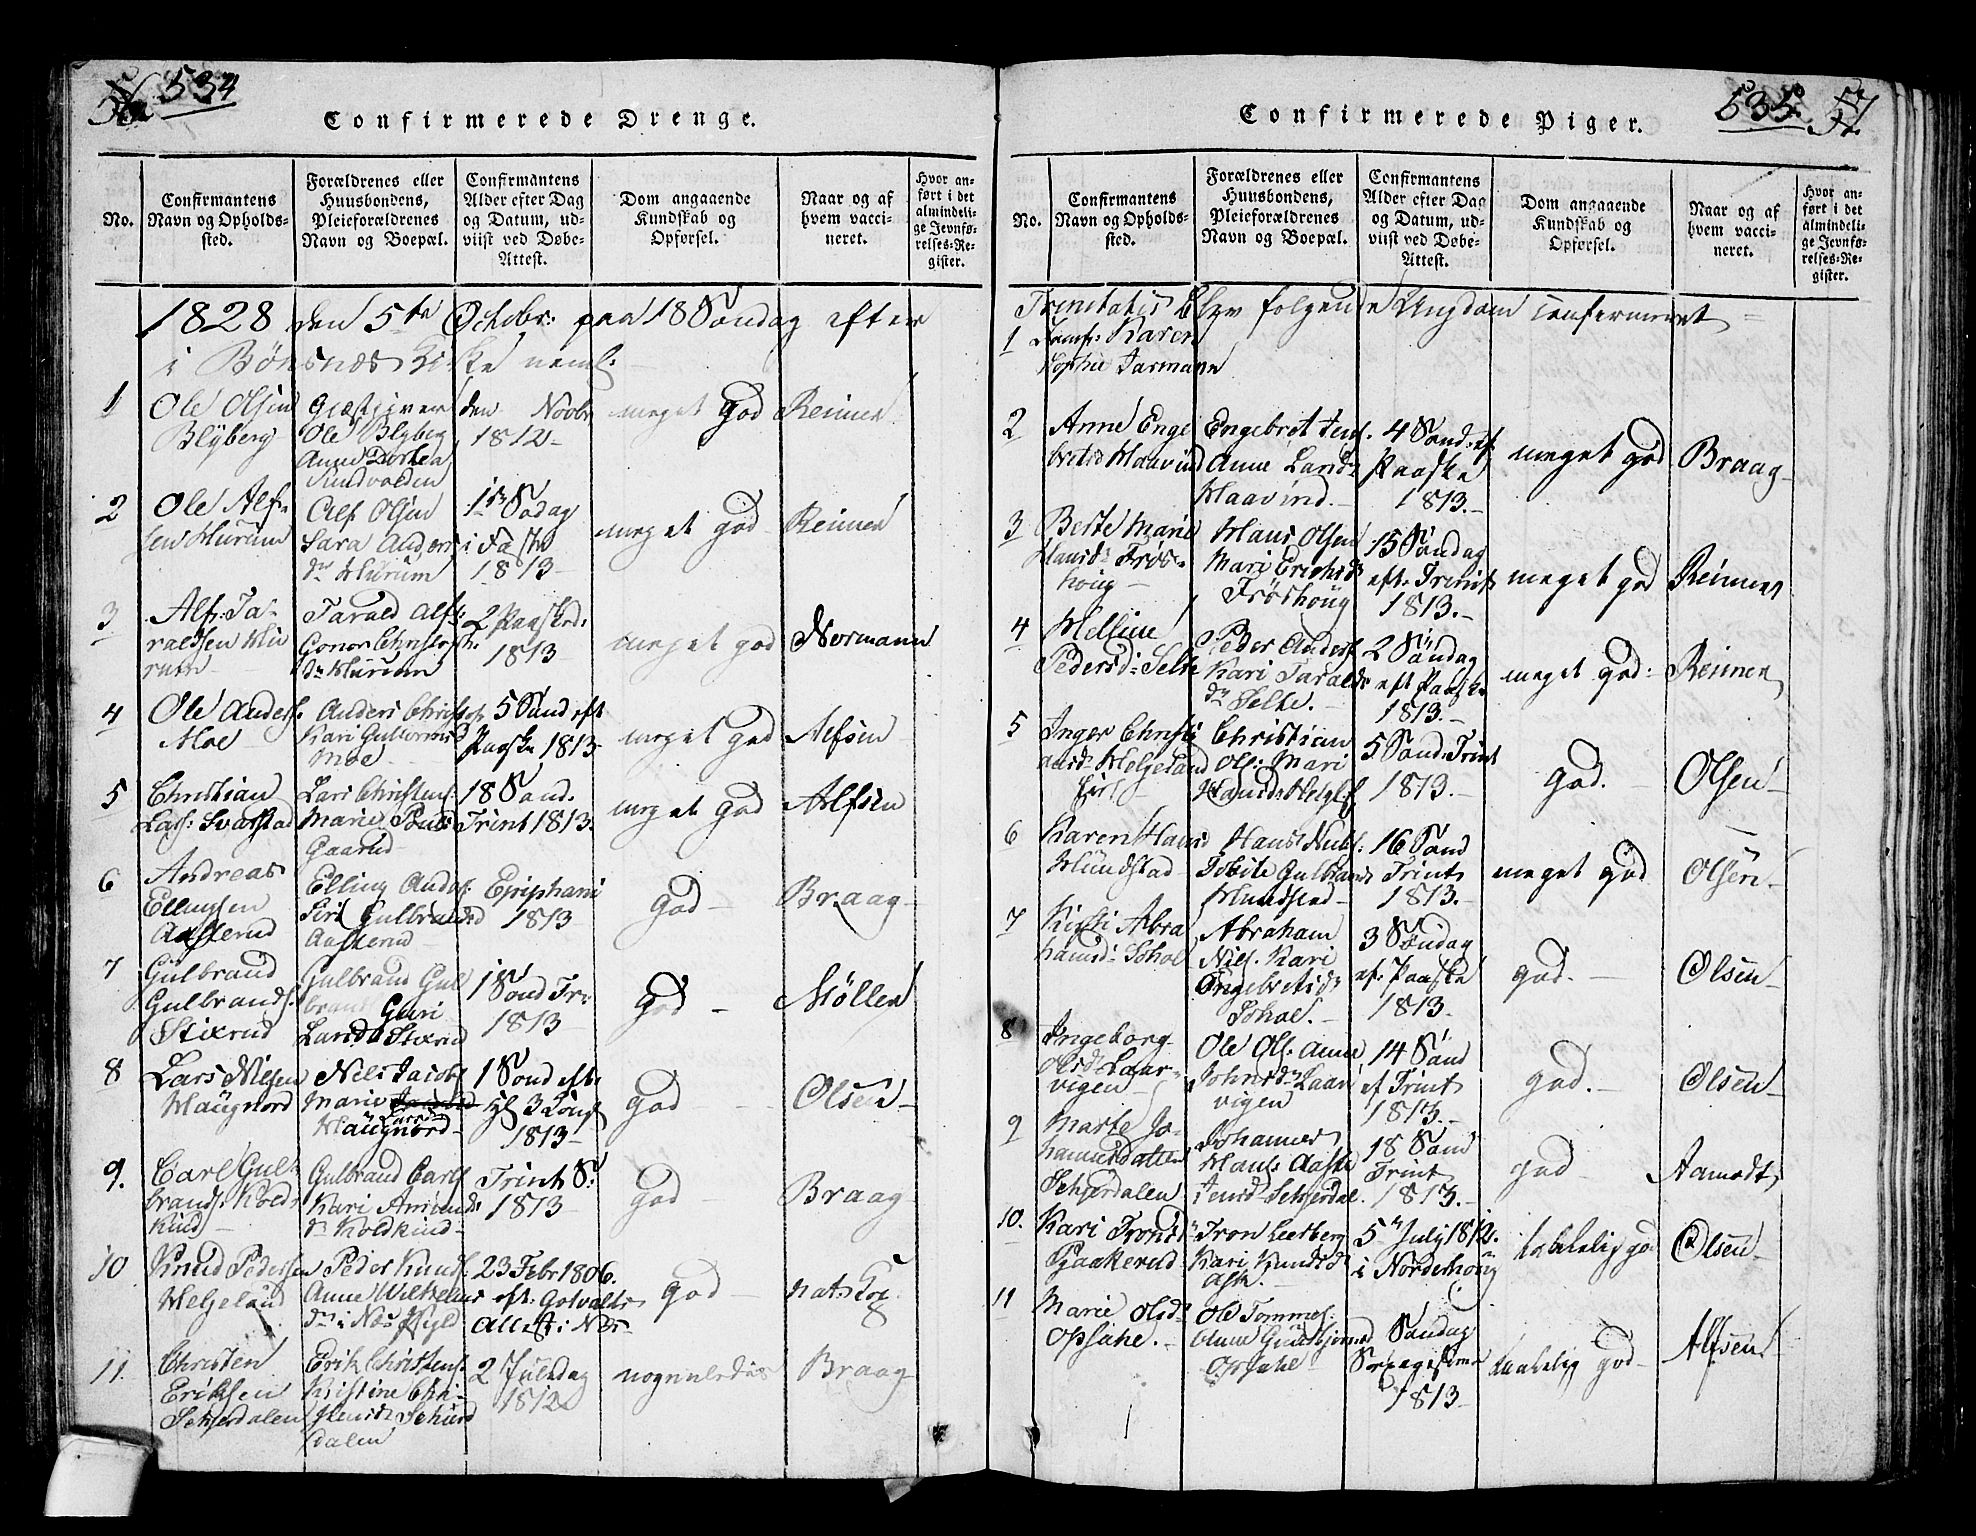 534
Confirmerede Drenge.
No.
Confirmantens
Navn og Opholds-
sted.
Forældrenes eller
Huusbondens,
Pleieforældrenes
Navn og Boepæl.
Confirmantens
Alder efter Dag
og Datum, ud-
viist ved Døbe-
Attest.
Dom angaaende
Kundskab og
Opførsel.
Naar og af
hvem vacci-
neret.
Hvor an-
ført i det
almindeli-
ge Jevnfø-
relses-Re-
gister.
1828 den 5te Octobr: paa 18 Søndag efter
i Bönsnæs Kirke neml:
1
Ole Olsen
Blÿberg
Giæstgiver
Ole Blyberg
Anne Dorthea
Sundvolden
den Novbr
1812
meget God
Reimer
2
Ole Alf-
sen Hurum
Alf Olsen
Sara Anders
dr Hurum
1ste Sødag
i Faste
1813
meget god
Reimer
3
Alf Ta-
raldsen Hu
rum
Tarald Alfs:
Gonor Christoph:
dr Hurum
2 Paaskd:
1813
meget god
Normann
4
Ole Anders:
Moe
Anders Christof:
Kari Guttormsd
Moe
5 Sønd eft
Paaske 1813
meget god
Alfsen
5
Christian
Lars: Svarstad
Lars Christens:
Marie Pouls
Gaarud
18 Sønd.
Trint 1813.
meget god
Alfsen
6
Andreas
Ellingsen
Aasterud
Elling Anders:
Siri Gulbrandsd
Aasterud
Epiphani
1813
God
Braag
7
Gulbrand
Gulbrands:
Stixrud
Gulbrand Gul
brands Guri
Larsd Stixrud
1 Sønd Tri
1813
God
Møller
8
Lars Nilsen
Haugnord
Nils Jacobs
Marie
Lars
Haugnord
1 Sønd eft
Hl 3 Kong
1813
god
Olsen
9.
Carl Gul-
brands: Kold-
kind
Gulbrand Carls
Kari Amunds
dr Koldkind
Trint S:
1813
god
Braag
10
Knud Pedersen
Helgeland
Peder Knuds:
Anne Wilhelms
dr i Næs
23 Febr 1806.
eft: Gotvalts
Attest i Næs
god
nat: Kop.
11.
Christen
Eriksen
Schierdalen
Erik Christens:
Kristine Chri-
stensd Schier
dalen
2 Juledag
1812
nogenledes
Braag
535
57
Confirmerede Piger.
No.
Confirmantens
Navn og Opholds-
sted.
Forældrenes eller
Huusbondens,
Pleieforældrenes
Navn og Boepæl.
Confirmantens
Alder efter Dag
og Datum, ud-
viist ved Døbe-
Attest.
Dom angaaende
Kundskab og
Opførsel.
Naar og af
hvem vacci-
neret.
Hvor an-
ført i det
almindeli-
ge Jevnfø-
relses-Re-
gister.
Trinitatis blev følgende Ungdom Confirmeret
1
Jomfr: Karen
Sophie Jarmann
2
Anne Enge
bretsd Haavind
Engebret Jens:
Anne Larsd:
Haavind.
4 Sønd: ef
Paaske
1813.
meget god
Braag
3
Berte Marie
Hansdr Frös-
houg
Hans Olsen
Mari Erichsd
Fröshoug
15 Søndag
eft: Trinit
1813.
meget god
Reimer
4
Helline
Pedersd: Selte
Peder Anders:
Kari Taralds
dr Selte.
2 Søndag
eft Paaske
1813.
meget god:
Reimer
5
Inger Christi
ansdr Helgeland
Christian
Ols: Mari
Hansdr Helgl
5 Sønd: Trint
1813.
God.
Olsen
6
Karen Hansd
Hundstad
Hans
Gulbrands
Hundstad
16 Sønd
Trint
1813.
meget god
Olsen
7
Kirsti Abra
hamsd: Sohol
Abraham
Nils. Kari
Engebretsdr
Sohol.
3 Søndag
ef: Paaske
1813.
god.
Olsen
8
Ingeborg
Olsd: Laar-
vigen
Ole Ols: Anne
Johnsdr Laar
vigen
14 Sønd
ef Trint
1813.
god.
Olsen
9
Marte Jo-
hannesdatter
Schierdalen
Johannes
Hans: Aaste
Jensd: Schierdal.
18 Sønd
Trint
1813.
god
Aamodt
10.
Kari Tronds
Paakerud
Tron Leeberg
Kari Knudsd
Ask.
5te July 1812.
i Norderhoug
takkelig god
Olsen
11
Marie Olsdr
Opsahl.
Ole Tommes:
Anne Gudbjørnsd
Opsahl
Søndag
Septuagesima
1813
takkelig god
Alfsen